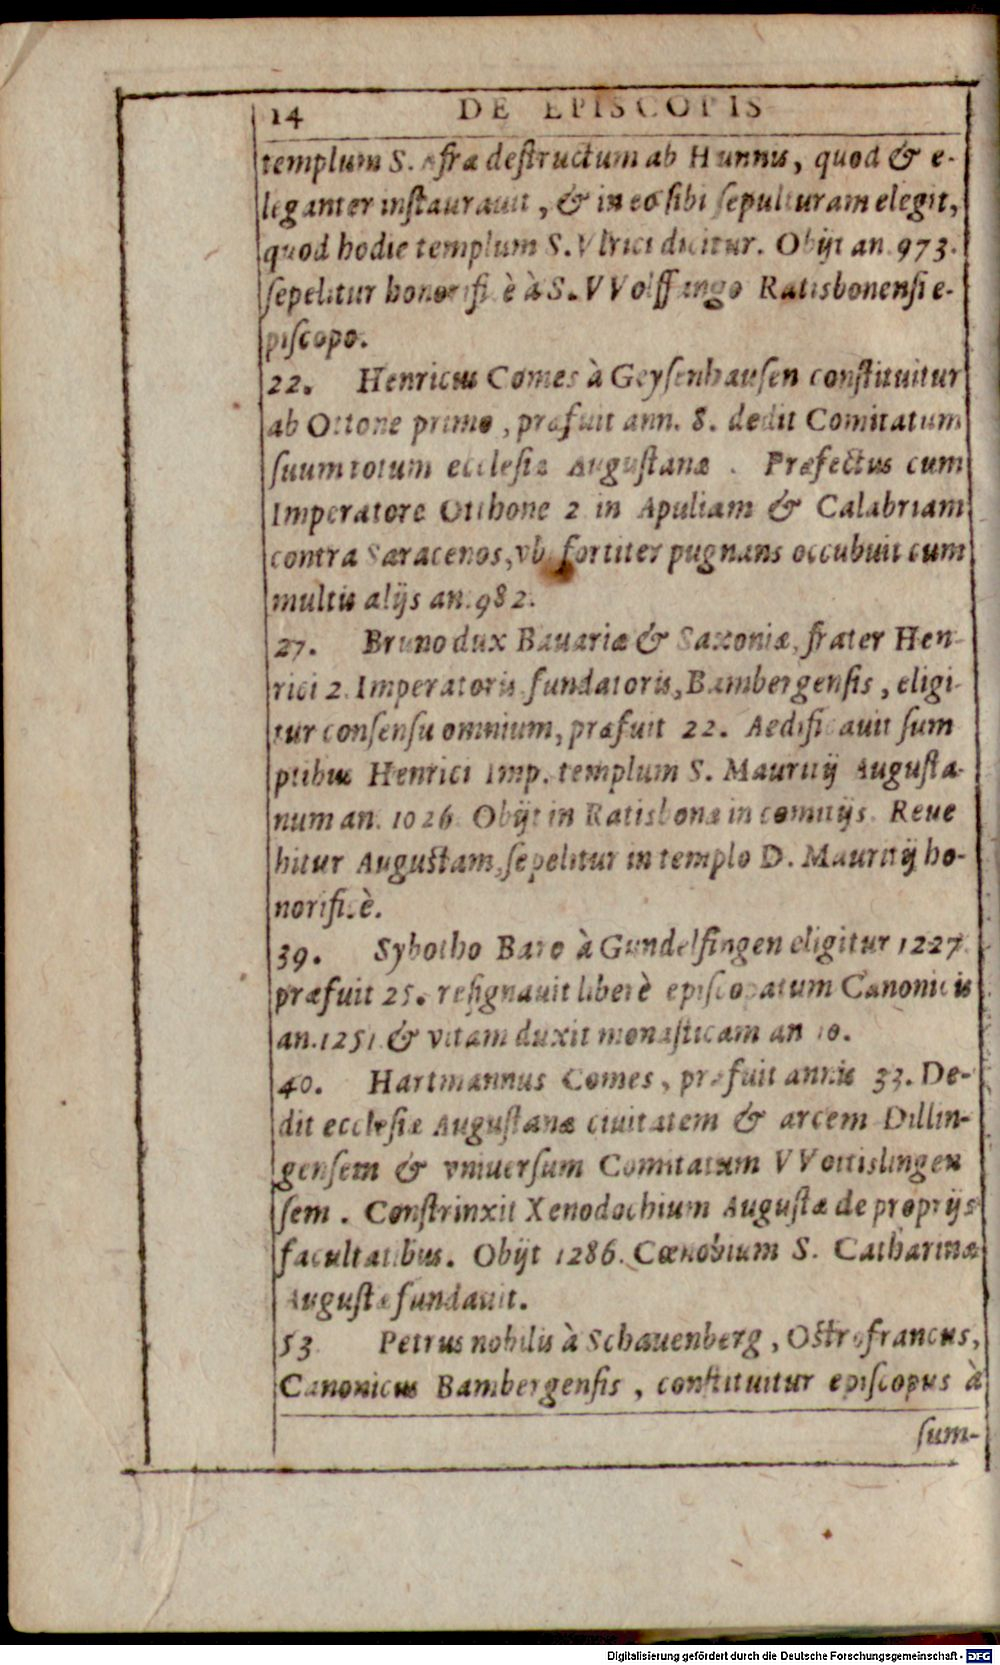 14 DE EPISCOPIS
templum S. Afræ destructum ab Hunnis, quod & e-
leganter instaurauit, & in eo sibi sepulturam elegit,
quod hodie templum S. Vlrici dicitur. Obijt an. 973.
sepelitur honorificè à S. VVolffango Ratisbonensi e-
piscopo.
22. Henricus Comes à Geysenhausen constituitur
ab Ottone primo, præfuit ann. 8. dedit Comitatum
suum totum ecclesiæ Augustanæ. Præfectus cum
Imperatore Otthone 2 in Apuliam & Calabriam
contra Saracenos, vbi fortiter pugnans occubuit cum
multis alijs an. 982.
27. Bruno dux Bauariæ & Saxoniæ, frater Hen-
rici 2. Imperatoris fundatoris, Bambergensis, eligi-
tur consensu omnium, præfuit 22. Aedificauit sum
ptibus Henrici Imp. templum S. Mauritij Augusta-
num an. 1026. Obijt in Ratisbona in comitijs. Reue
hitur Augustam, sepelitur in templo D. Mauritij ho-
norificè.
39. Sybotho Baro à Gundelfingen eligitur 1227.
præfuit 25. resignauit liberè episcopatum Canonicis
an. 1251 & vitam duxit monasticam an 10.
40. Hartmannus Comes, præfuit annis 33. De-
dit ecclesiæ Augustanæ ciuitatem & arcem Dillin-
gensem & vniuersum Comitatum VVittislingen
sem. Constrinxit Xenodochium Augustæ de proprijs
facultatibus. Obijt 1286. Cœnobium S. Catharinæ
Augustæ fundauit.
53 Petrus nobilis à Schauenberg, Ostrofrancus,
Canonicus Bambergensis, constituitur episcopus à
sum-
Digitalisierung gefördert durch die Deutsche Forschungsgemeinschaft - DFG